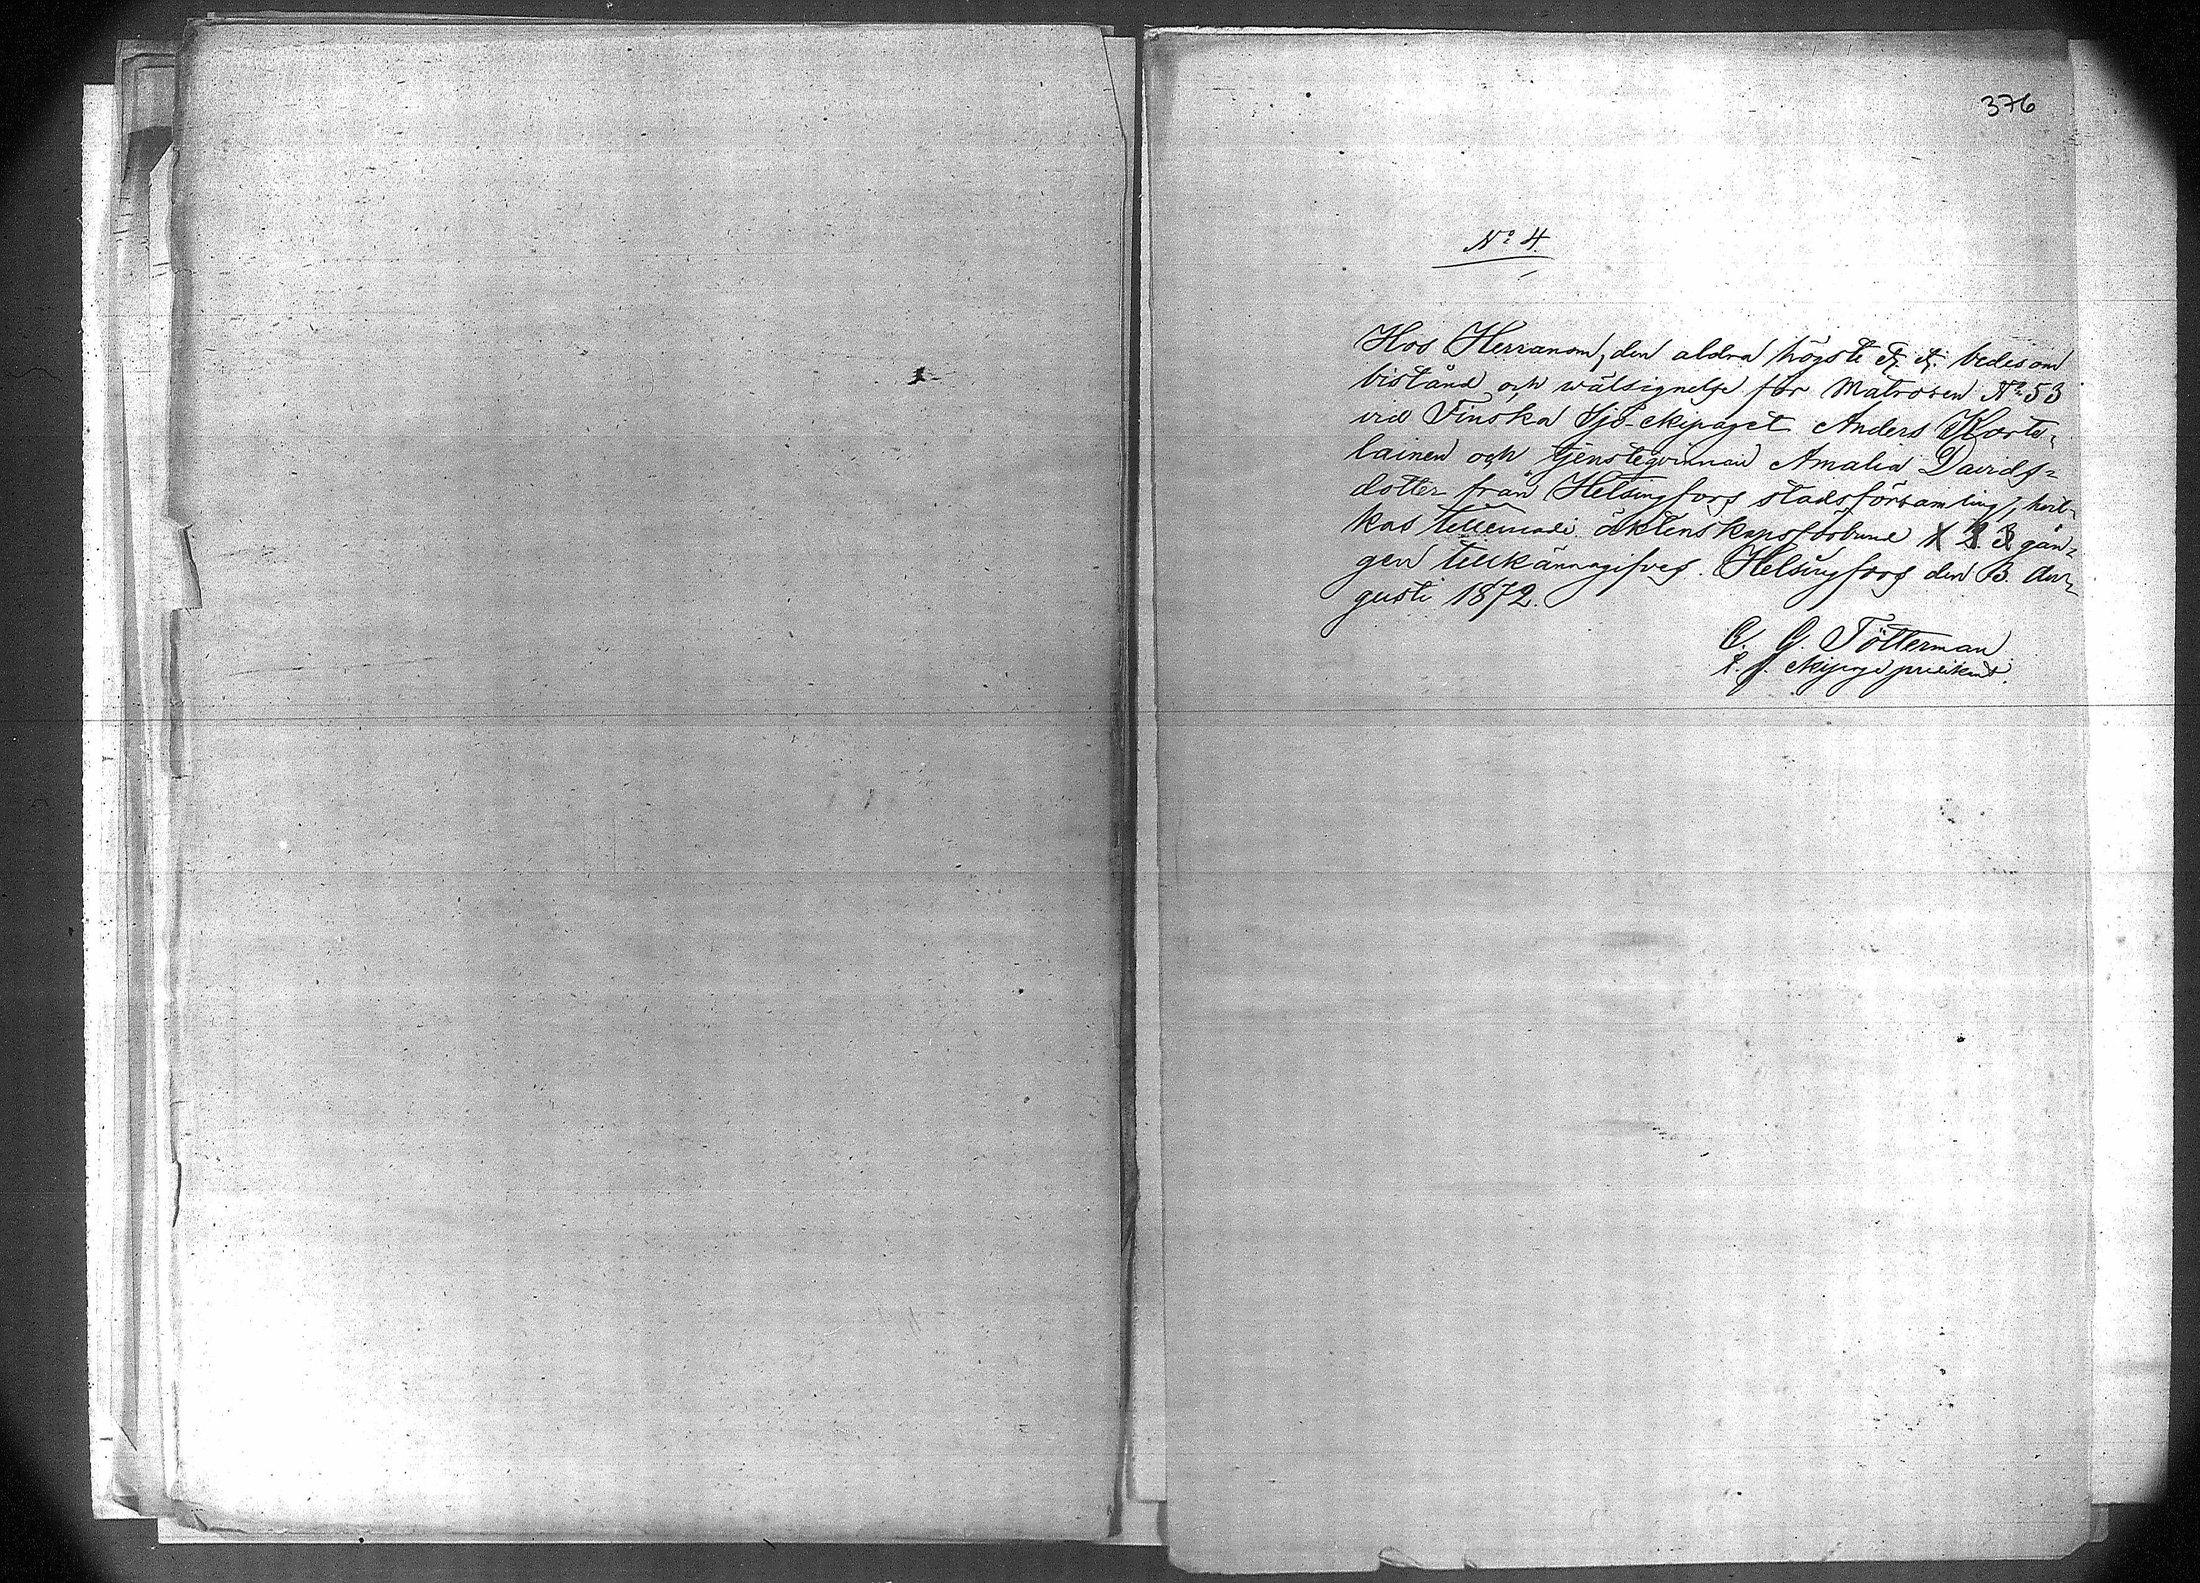 376
No 4.
Hos Herranom, den aldra högste &. &. bedes om
bistånd och wälsignelse för Matrosen No 53
vid Finska Sjö-ekipaget Anders Korte-
lainen och tjensteqvinnan Amalia Davids-
dotter från Helsingfors stadsförsamling, hvil-
kas äktenskapsförbund 1 2. 3 gån-
gen tillkännagifves. Helsingfors den 3. Au-
gusti 1872.
G. Tötterman
ekipagepredikant.